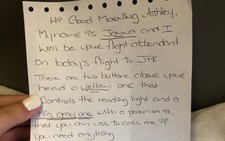 Hi Good Morning Ashley,
My name is Jenna and I
will be your flight attendant
on today's flight to JFK
There are two buttons above your
head a yellow one that
controls the reading light and a
grey one with a person on it
that you can use to call me, if
you need anything.